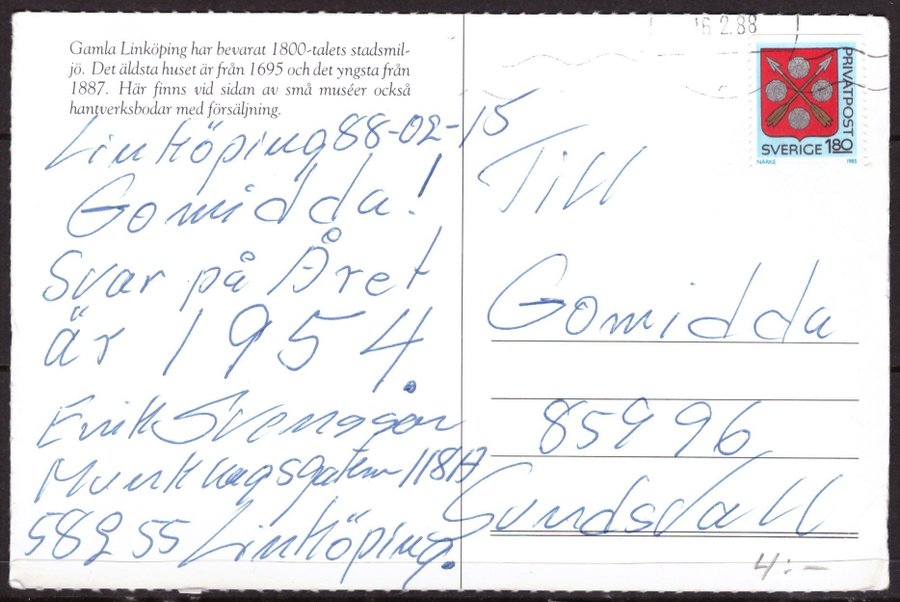 Gamla Linköping har bevarat 1800-talets stadsmil-
jö. Det äldsta huset är från 1695 och det yngsta från
1887. Här finns vid sidan av små muséer också
hantverksbodar med försäljning.
Linköping 88-02-15
Gomidda!
Svar på Året
är 1954.
Erik Svensson
Munkhagsgatan 118A
582 55 Linköping.
16.2.88
PRIVATPOST
SVERIGE 180
NÄRKE 1985
Till
Gomidda
85996
Sundsvall
4:-